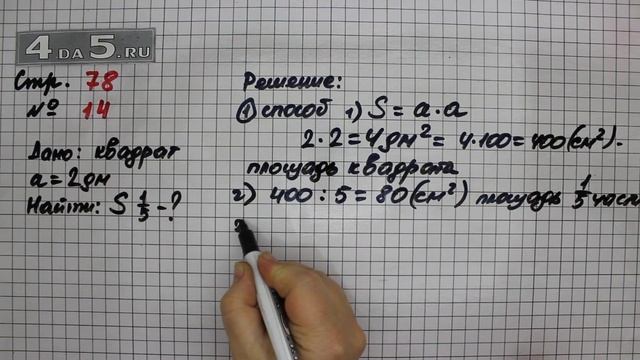 4DA5.RU
Стр. 78
№ 14
Дано: квадрат
a = 2 дм
Найти: S 1/5 - ?
Решение:
① способ 1) S = a · a
2 · 2 = 4 дм² = 4 · 100 = 400 (см²) -
площадь квадрата
2) 400 : 5 = 80 (см²) площадь 1/5 част